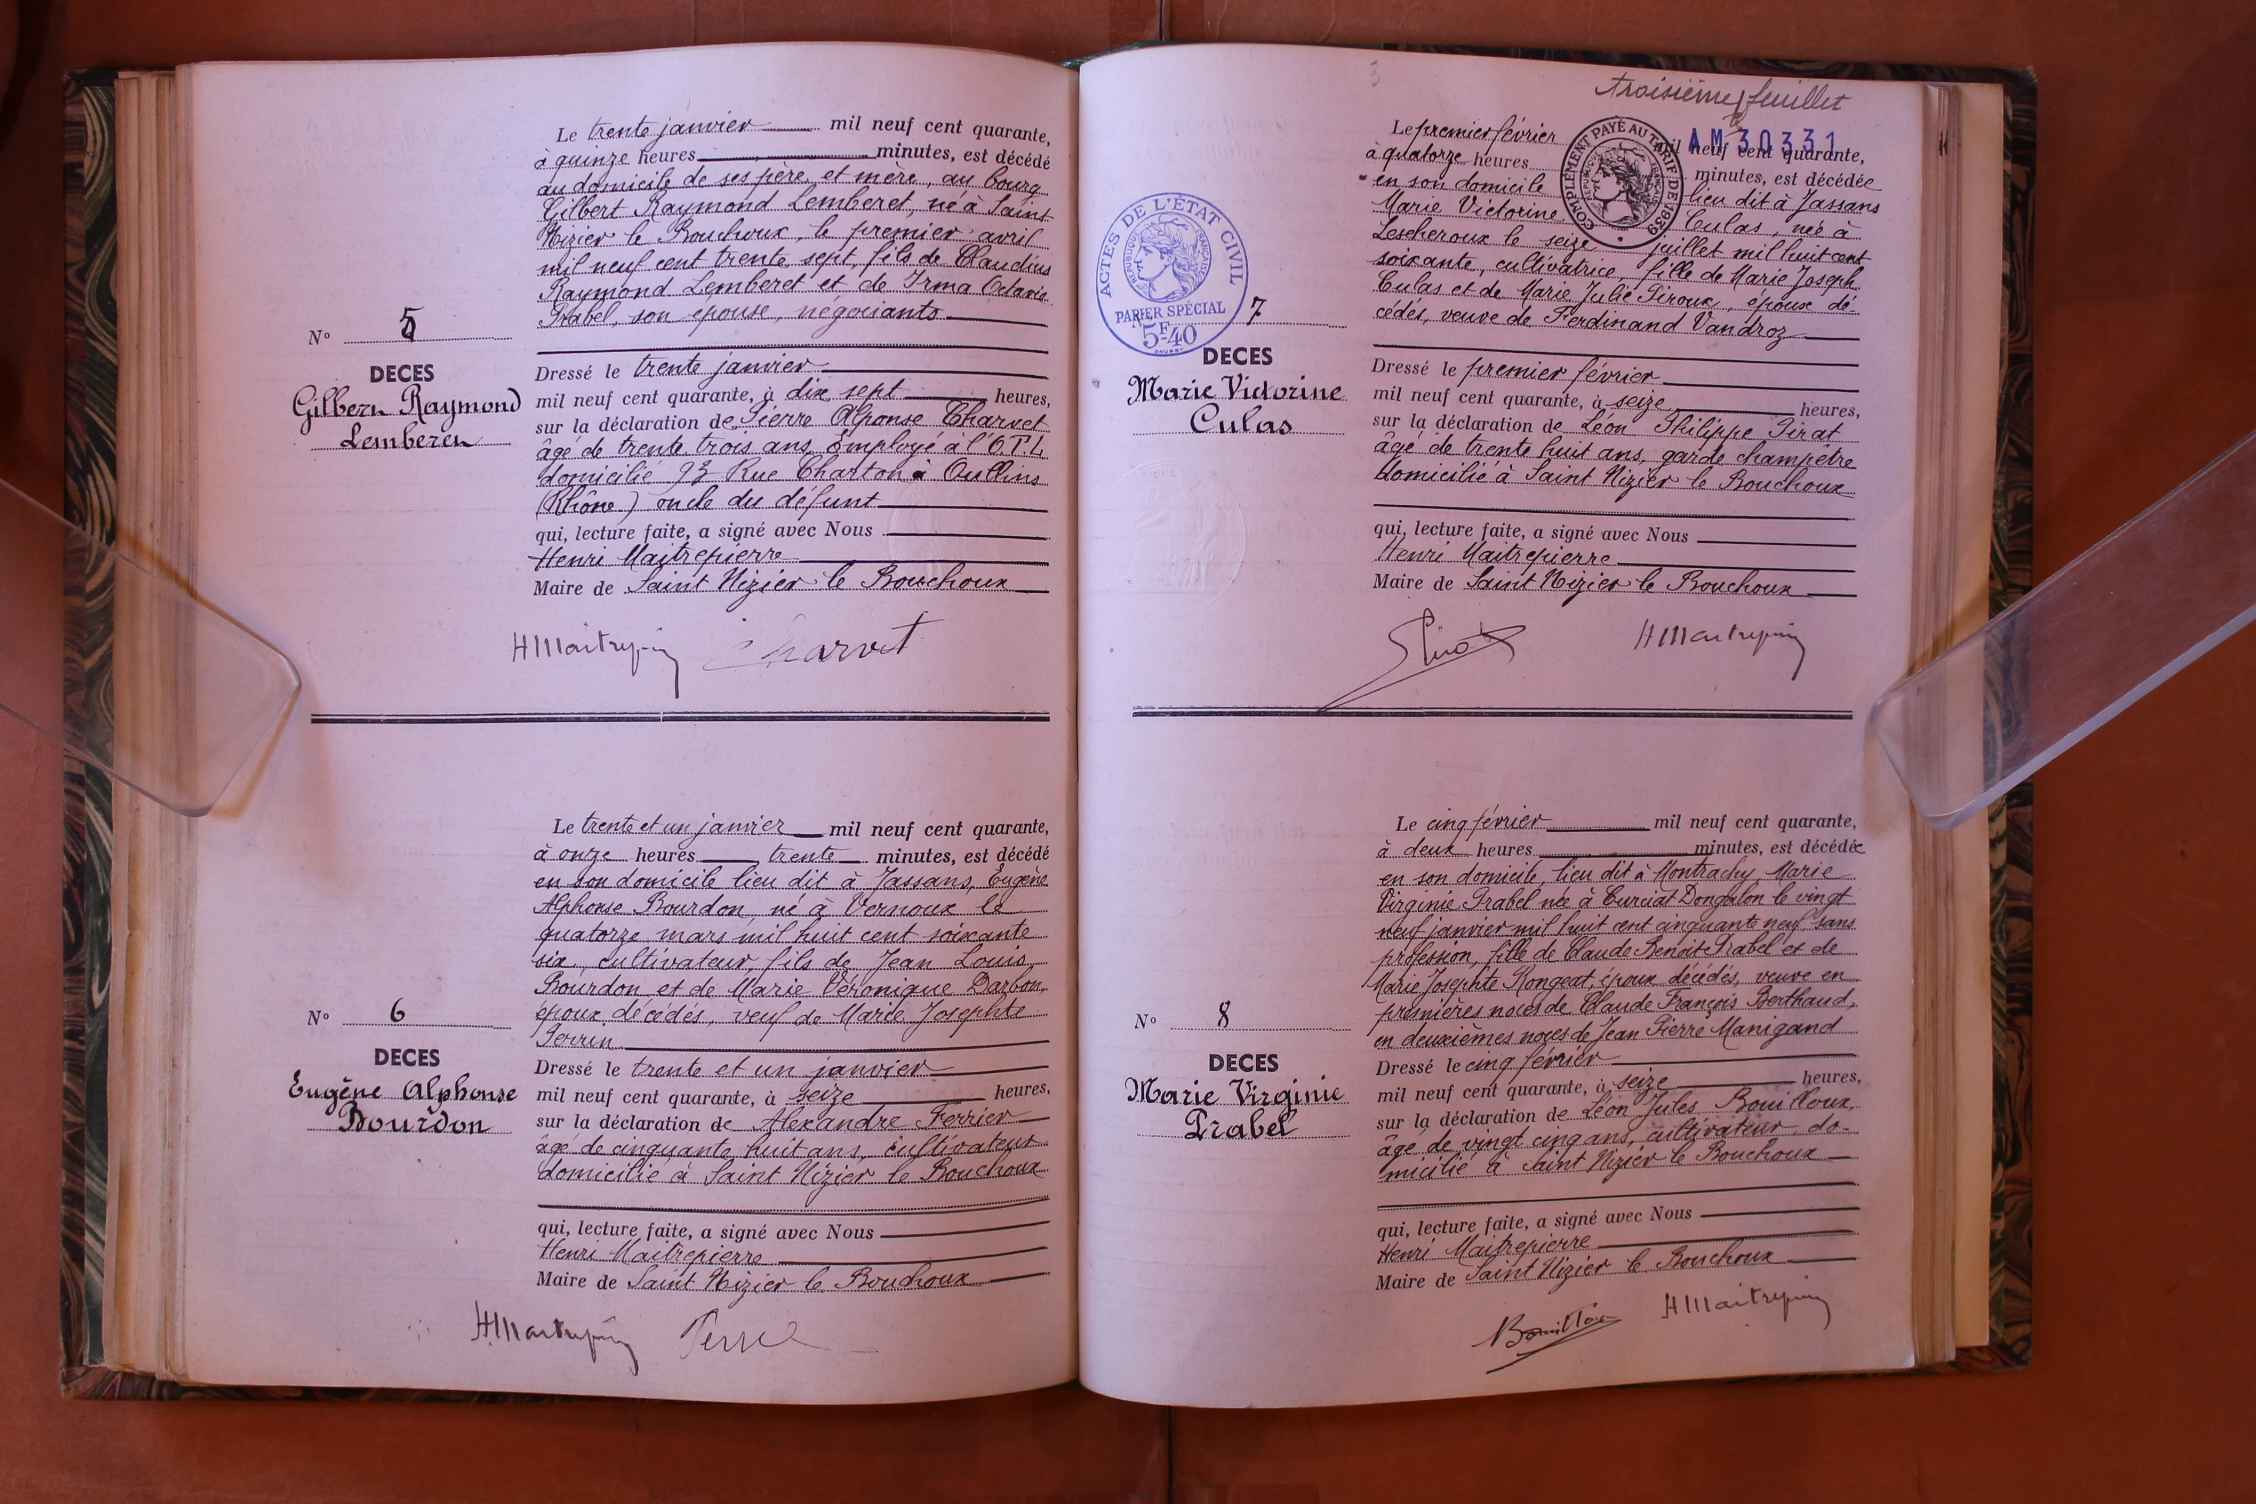 Le trente janvier mil neuf cent quarante,
à quinze heures minutes, est décédé
au domicile de ses père et mère, au bourg
Gilbert Raymond Lemberet, né à Saint
Nizier le Bouchoux, le premier avril
mil neuf cent trente sept, fils de Claudius
Raymond Lemberet et de Irma Octavie
Prabel, son épouse, négociants
N° 5
DECES
Gilbert Raymond
Lemberet
Dressé le trente janvier
mil neuf cent quarante, à dix sept heures,
sur la déclaration de Pierre Alponse Charvet
âgé de trente trois ans, Employé à l'O.T.L
domicilié 93 Rue Charton à Oullins
(Rhône) oncle du défunt
qui, lecture faite, a signé avec Nous
Henri Maitrepierre
Maire de Saint Nizier le Bouchoux
HMaitrepierre Charvet
Le trente et un janvier mil neuf cent quarante,
à onze heures trente minutes, est décédé
en son domicile lieu dit à Jassans, Eugène
Alphonse Bourdon, né à Vernoux le
quatorze mars mil huit cent soixante
six, cultivateur, fils de Jean Louis
Bourdon et de Marie Véronique Darbon,
époux décédés, veuf de Marie Josephte
Perrin
N° 6
DECES
Eugène Alphonse
Bourdon
Dressé le trente et un janvier
mil neuf cent quarante, à seize heures,
sur la déclaration de Alexandre Ferrier
âgé de cinquante huit ans, cultivateur
domicilié à Saint Nizier le Bouchoux
qui, lecture faite, a signé avec Nous
Henri Maitrepierre
Maire de Saint Nizier le Bouchoux
HMaitrepierre
3
troisième feuillet
AM 30331
COMPLÉMENT PAYÉ AU TARIF DE 1939
Le premier février mil neuf cent quarante,
à quatorze heures minutes, est décédée
en son domicile lieu dit à Jassans
Marie Victorine Culas, née à
Lescheroux le seize juillet mil huit cent
soixante, cultivatrice, fille de Marie Joseph
Culas et de Marie Julie Piroux, époux dé-
cédés, veuve de Ferdinand Vandroz
ACTES DE L'ÉTAT CIVIL
RÉPUBLIQUE FRANÇAISE
PAPIER SPÉCIAL
5F40
7
DECES
Marie Victorine
Culas
Dressé le premier février
mil neuf cent quarante, à seize heures,
sur la déclaration de Léon Philippe Pirat
âgé de trente huit ans, garde champêtre
domicilié à Saint Nizier le Bouchoux
qui, lecture faite, a signé avec Nous
Henri Maitrepierre
Maire de Saint Nizier le Bouchoux
Pirat HMaitrepierre
Le cinq février mil neuf cent quarante,
à deux heures minutes, est décédée
en son domicile, lieu dit à Montrachy Marie
Virginie Prabel née à Curciat Dongalon le vingt
neuf janvier mil huit cent cinquante neuf sans
profession, fille de Claude Benoit Prabel et de
Marie Josephte Rongeat, époux décédés, veuve en
premières noces de Claude François Berthaud,
en deuxièmes noces de Jean Pierre Manigand
N° 8
DECES
Marie Virginie
Prabel
Dressé le cinq février
mil neuf cent quarante, à seize heures,
sur la déclaration de Léon Jules Bouilloux,
âgé de vingt cinq ans, cultivateur, do-
micilié à Saint Nizier le Bouchoux
qui, lecture faite, a signé avec Nous
Henri Maitrepierre
Maire de Saint Nizier le Bouchoux
Bouilloux HMaitrepierre